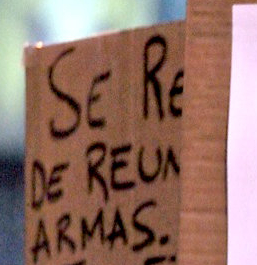 SE RE
DE REUN
ARMAS.